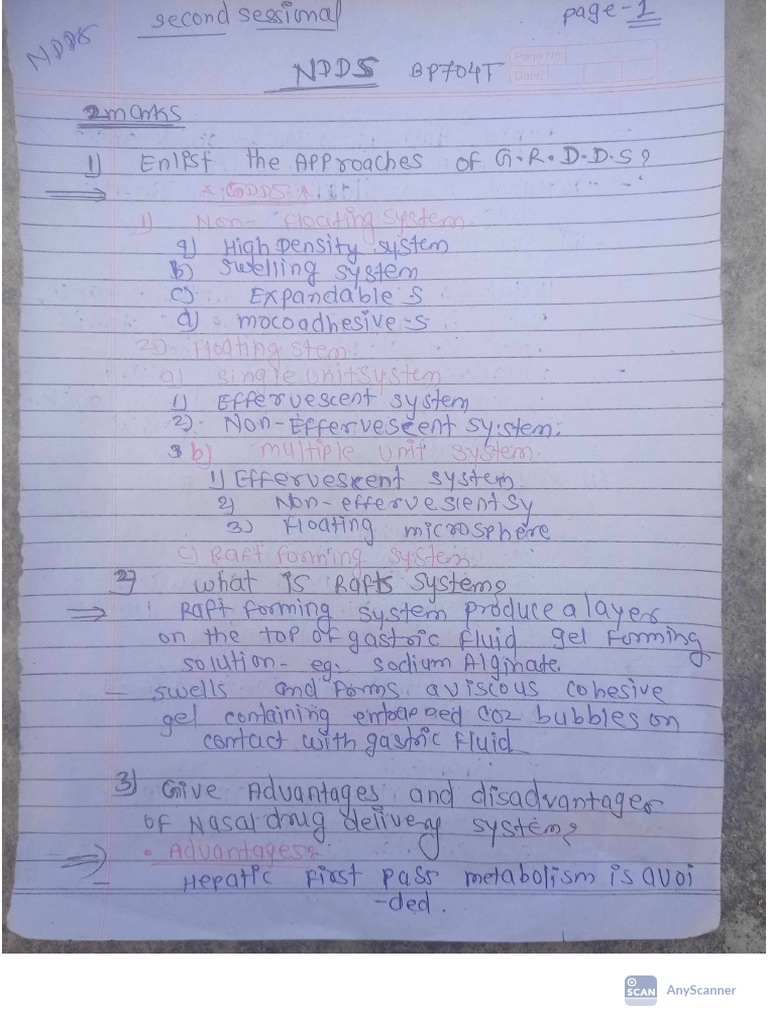 second sessional
page-1
NDDS
NDDS BP704T
Page No:
Date:
2marks
1) Enlist the Approaches of G.R.D.D.S?
* GDDS *
1) Non- floating system
a) High Density system
b) swelling system
c) Expandable-s
d) mocoadhesive-s
2)- floating stem
a) single unit system
1) Effervescent system
2). Non-Effervescent system.
b) multiple unit system
1) Effervescent system
2) Non-effervesient sy
3) floating microsphere
c) Raft forming system
2) what is Rafts system?
Raft forming system produce a layer
on the top of gastric fluid gel forming
solution- eg. sodium Alginate.
- swells and forms a viscous cohesive
gel containing entrapped co2 bubbles on
contact with gastric fluid
3) Give Advantages and disadvantages
of Nasal drug delivery system?
• Advantages:
- Hepatic first pass metabolism is avoi
-ded.
SCAN AnyScanner